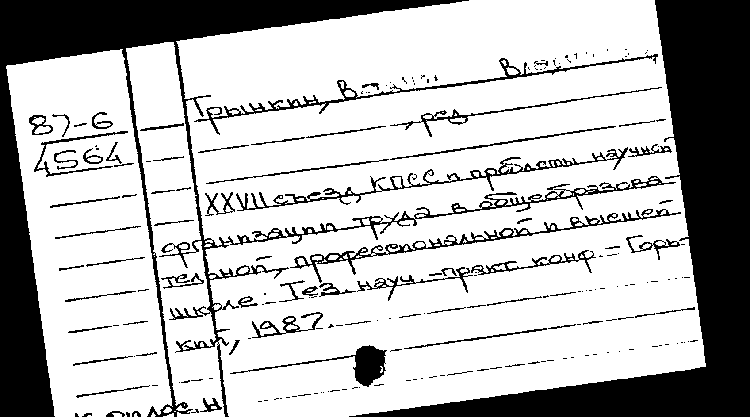 87-6
4564
Трынкин,
, ред.
XXVII съезд КПСС и проблемы научной
организации труда в общеобразова-
тельной, профессиональной и высшей
школе: Тез. науч.-практ. конф. - Горь-
кий, 1987.